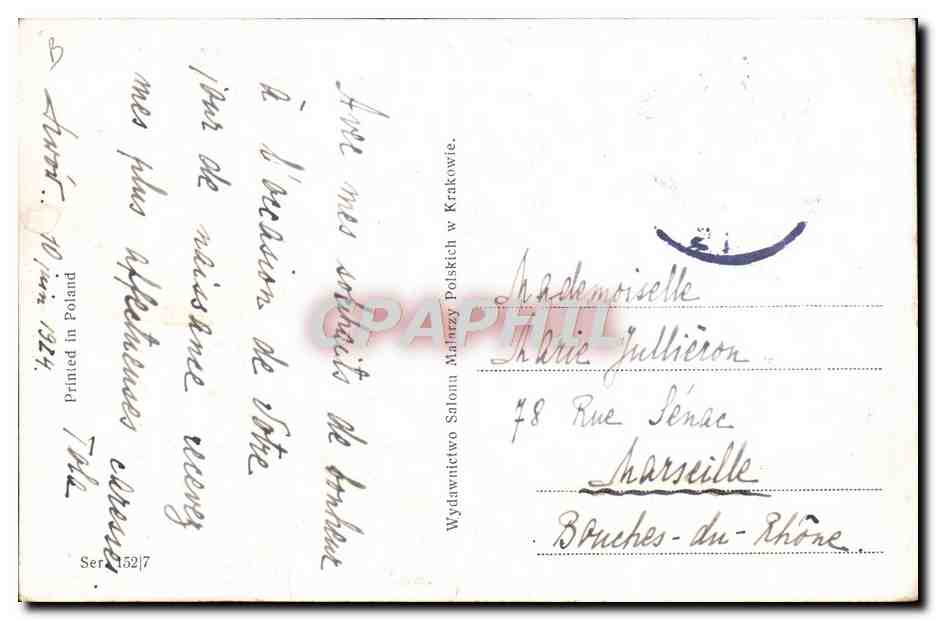 Avec mes souhaits de bonheur
à l'occasion de votre
jour de naissance recevez
mes plus affectueuses caresses
Tola
Lwów.. 10 juin 1924.
Printed in Poland
Ser. 152|7
Wydawnictwo Salonu Malarzy Polskich w Krakowie.
Mademoiselle
Marie Jullièron
78 Rue Sénac
Marseille
Bouches-du-Rhône.
CPAPHIL